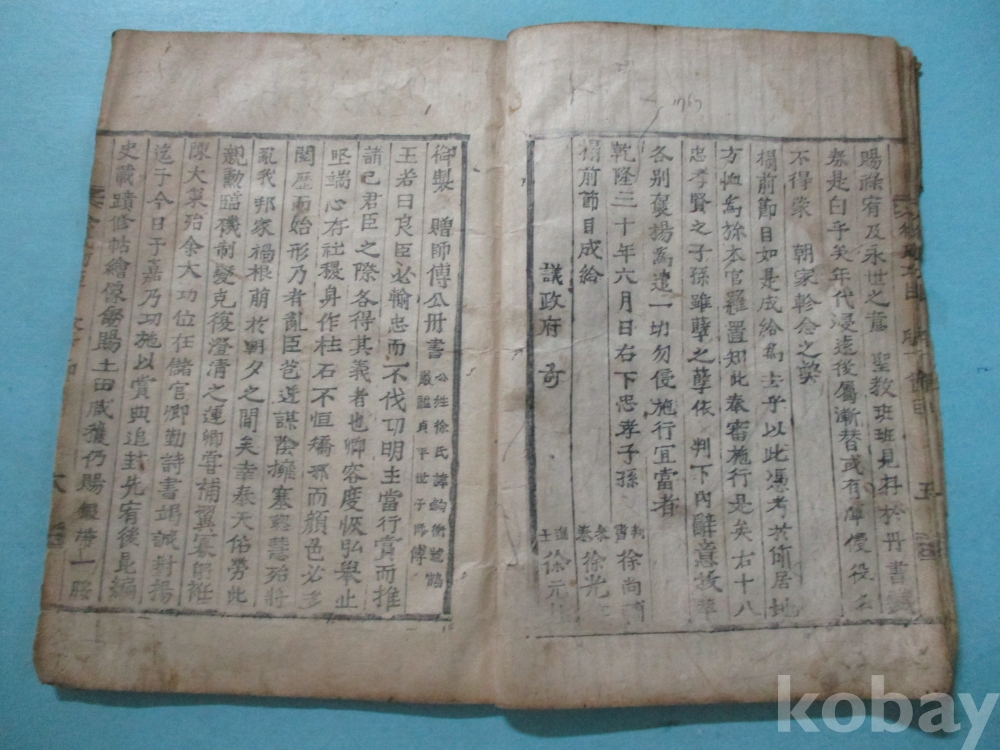 賜祿宥及永世之 聖教班班見於丹書
泰是白乎矣年代浸遠後屬漸替或有 侵役
不得蒙 朝家軫念之
榻前節目如是成給爲去乎以此憑考於所居地
方 爲旀本官 置知此奉審施行是矣右十八
忠孝賢之子孫雖孽之孽依 判下內辭意故
各別褒揚爲遣一切勿侵施行宜當者
乾隆三十年六月日右下忠孝子孫
榻前節目成給
判 徐尚
參 徐光
進士徐元
議政府
1767
御製 贈師傅公冊書
公姓徐氏諱鈞衡號鶴
巖諡貞平世子師傅
王若曰良臣必輸忠而不伐功明主當行賞而推
諸己君臣之際各得其義者也卿容度恢弘舉止
堅端心存社稷身作柱石不恒矯 而顏色必多
閱歷而始形乃者亂臣 逆謀陰擁塞 慧殆將
亂我邦家禍根萌於朝夕之間矣幸奉天佑勞此
親勳臨機制變克復澄清之運卿嘗補翼寡
陳大 殆余大功位在儲宮卿勤詩書竭誠對揚
迄于今日予嘉乃功施以賞典追封先宥後昆編
史載蹟修帖繪像 賜土田臧獲仍賜銀 一
kobay